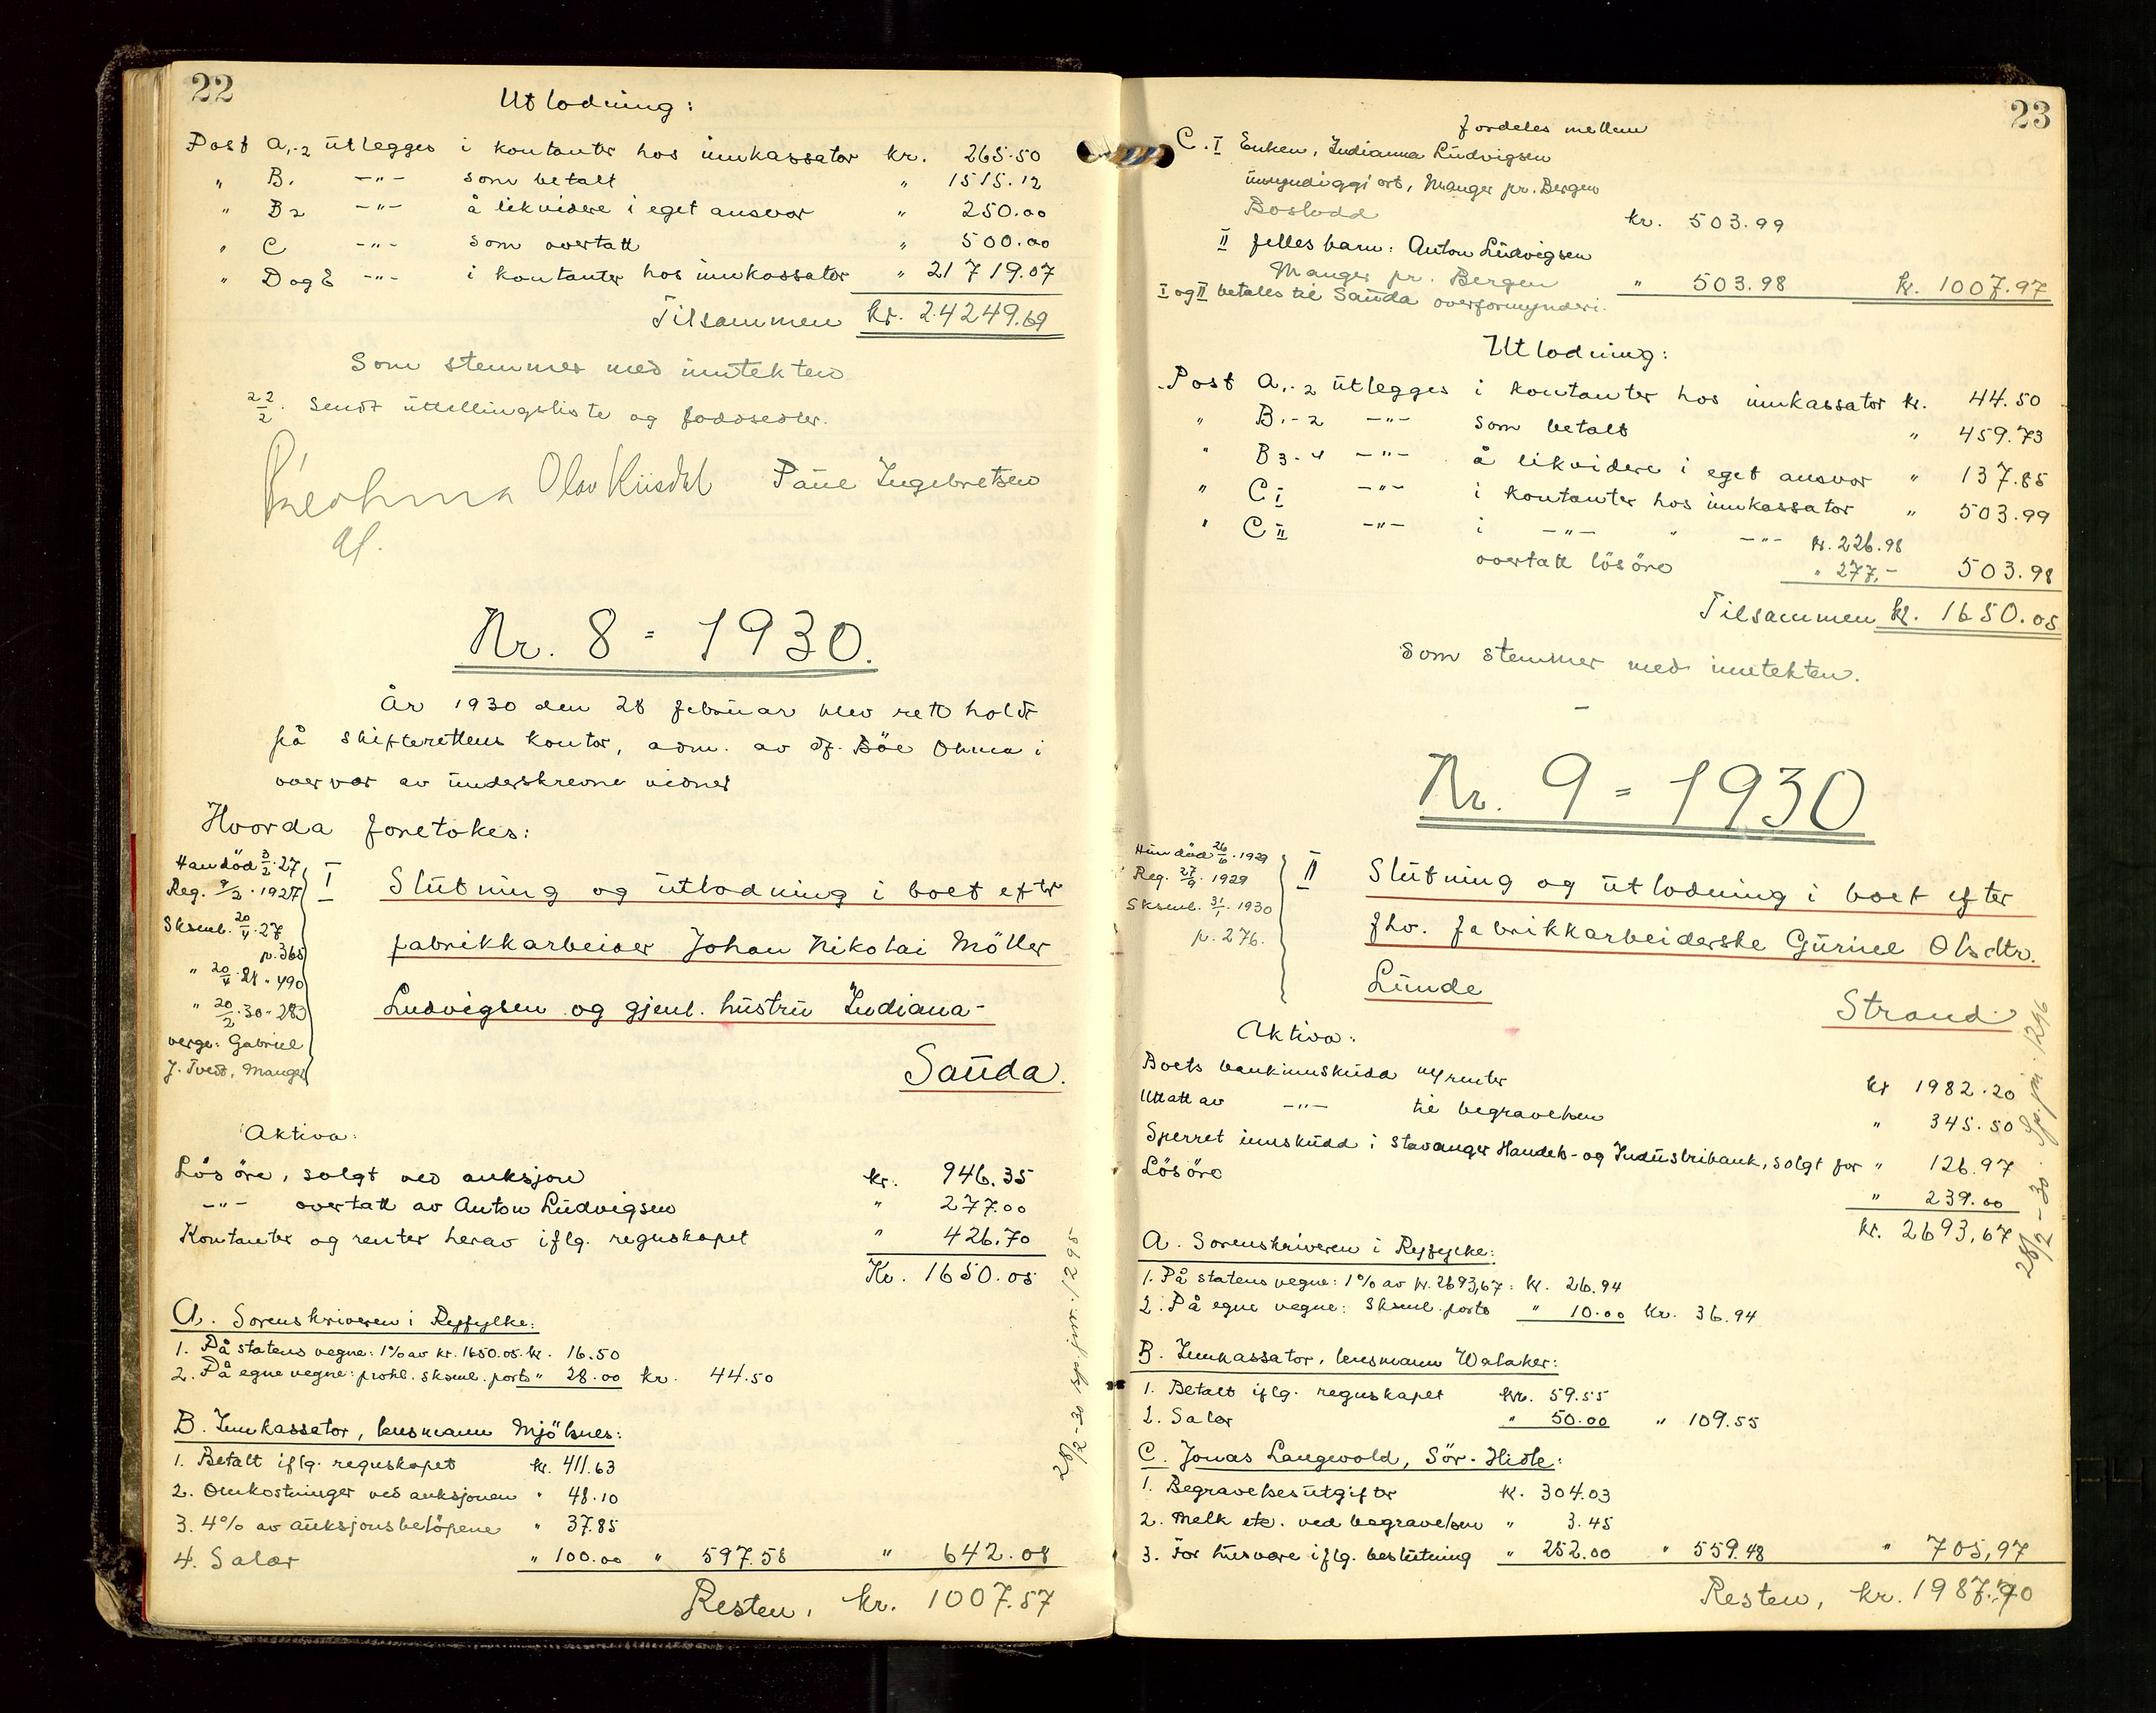 22
Utlodning:
Post A, -2 utlegges i kontanter hos innkassator kr. 265.50
" B. -"- som betalt " 1515.12
" B2 -"- å likvidere i eget ansvar " 250.00
" C -"- som overtatt " 500.00
" D og E -"- i kontanter hos innkassator " 21719.07
Tilsammen kr. 24249.69
Som stemmer med inntekten
22/2. Sendt utlellingsliste og
Olav Paul Ingebretsen
Nr. 8 = 1930.
År 1930 den 28 februar blev rett holdt
på skifterettens kontor, adm. av df. Böe Ohma i
overvær av underskrevne vidner
Hvorda foretokes:
Han död 3/2.27
Reg. 9/2.1927
Sksml. 20/4.27
p. 365
" 20/4.28 - 490
" 20/2.30 - 283
verge: Gabriel
J. Tveit, Manger
I Slutning og utlodning i boet efter
fabrikkarbeider Johan Nikolai Möller
Ludvigsen og gjenl. hustru Indiana -
Sauda.
Aktiva:
Lösöre, solgt ved auksjon kr. 946.35
-"- overtatt av Anton Ludvigsen " 277.00
Kontanter og renter herav iflg. regnskapet " 426.70
Kr. 1650.05
A. Sorenskriveren i Ryfylke:
1. På statens vegne: 1% av kr. 1650.05. kr. 16.50
2. På egne vegne: prokl. sksml. porto " 28.00 kr. 44.50
B. Innkassator, lensmann Mjölsnes:
1. Betalt iflg. regnskapet kr. 411.63
2. Omkostninger ved auksjonen " 48.10
3. 4% av auksjonsbelöpene " 37.85
4. Salær " 100.00 " 597.58 " 642.08
Resten, kr. 1007.57
28/2-30 sp. jnr. 1295
23
fordeles mellem
C. I Enken, Indianna Ludvigsen
umyndiggjort, Manger pr. Bergen
Boslodd kr. 503.99
II felles barn: Anton Ludvigsen
Manger pr. Bergen " 503.98 kr. 1007.97
I og II betales til Sauda overformynderi.
Utlodning:
Post A, -2 utlegges i kontanter hos innkassator kr. 44.50
" B. - 2 -"- som betalt " 459.73
" B 3 - 4 -"- å likvidere i eget ansvar " 137.85
" C I -"- i kontanter hos innkassator " 503.99
" C II -"- i -"- " -"- kr. 226.98
overtatt lösöre " 277,- 503.98
Tilsammen kr. 1650.05
Som stemmer med inntekten.
-
Nr. 9 = 1930
Hun död 26/6.1929
Reg. 27/9.1929
Sksml. 31/1.1930
p. 276.
II Slutning og utlodning i boet efter
fhv. fabrikkarbeiderske Guriel Olsdtr.
Lunde
Strand
Aktiva:
Boets bankinnskudd m/renter kr 1982.20
Uttatt av -"- til begravelsen " 345.50
Sperret innskudd i Stavanger Handels- og Industribank, solgt for " 126.97
Lösöre " 239.00
kr. 2693,67
28/2-30. Sp. jnr. 1296
A. Sorenskriveren i Ryfylke:
1. På statens vegne: 1% av kr. 2693,67: kr. 26.94
2. På egne vegne: Sksml. porto " 10.00 kr. 36.94
B. Innkassator, lensmann Walaker:
1. Betalt iflg. regnskapet kr. 59.55
2. Salær " 50.00 " 109.55
C. Jonas Langvold, Sör-Hidle:
1. Begravelsesutgifter kr. 304.03
2. Melk etc. ved begravelsen " 3.45
3. For husvære iflg. beslutning " 252.00 " 559.48 " 705,97
Resten, kr. 1987.70